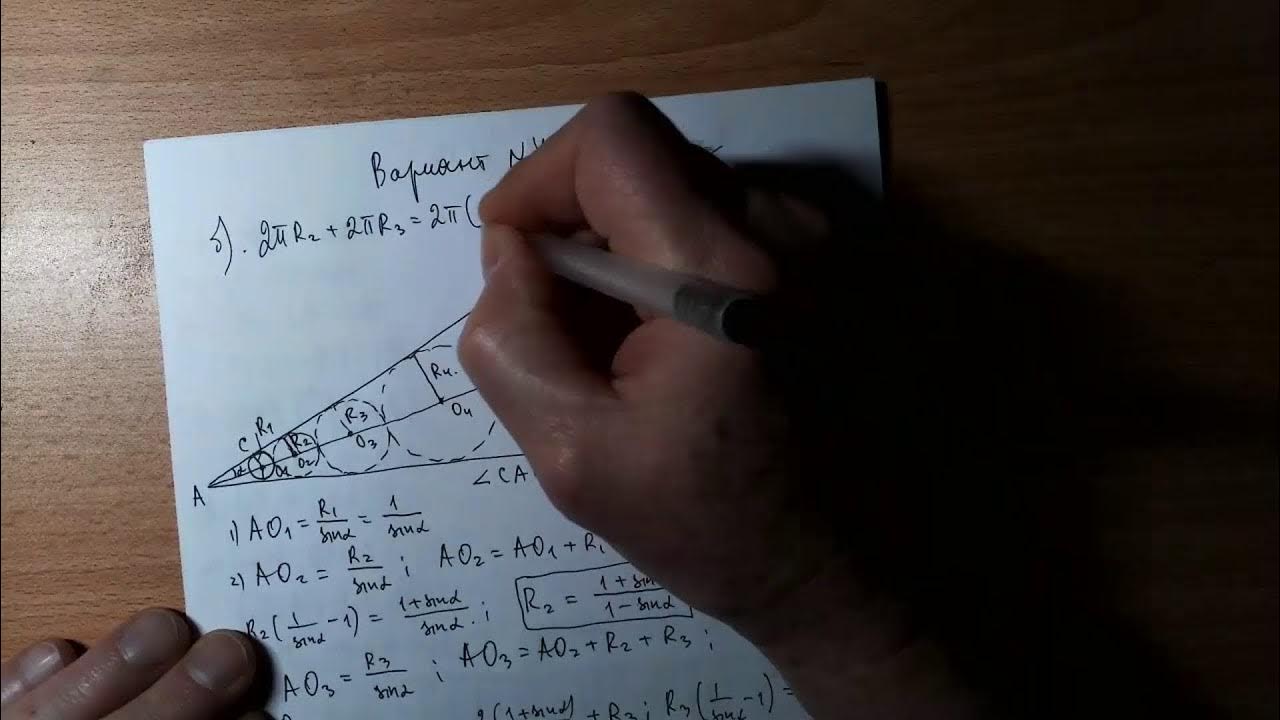 Вариант N
б). 2πR₂ + 2πR₃ = 2π(
R₄.
R₁
R₃
C
R₂
O₄
O₃
α O₁ O₂
A
∠CA
1) AO₁ = R₁/sinα = 1/sinα
2) AO₂ = R₂/sinα ; AO₂ = AO₁ + R₁
R₂(1/sinα - 1) = 1+sinα/sinα . ; R₂ = 1+sinα/1-sinα
AO₃ = R₃/sinα ; AO₃ = AO₂ + R₂ + R₃ ;
(1+sinα) + R₃ ; R₃(1/sinα - 1) =